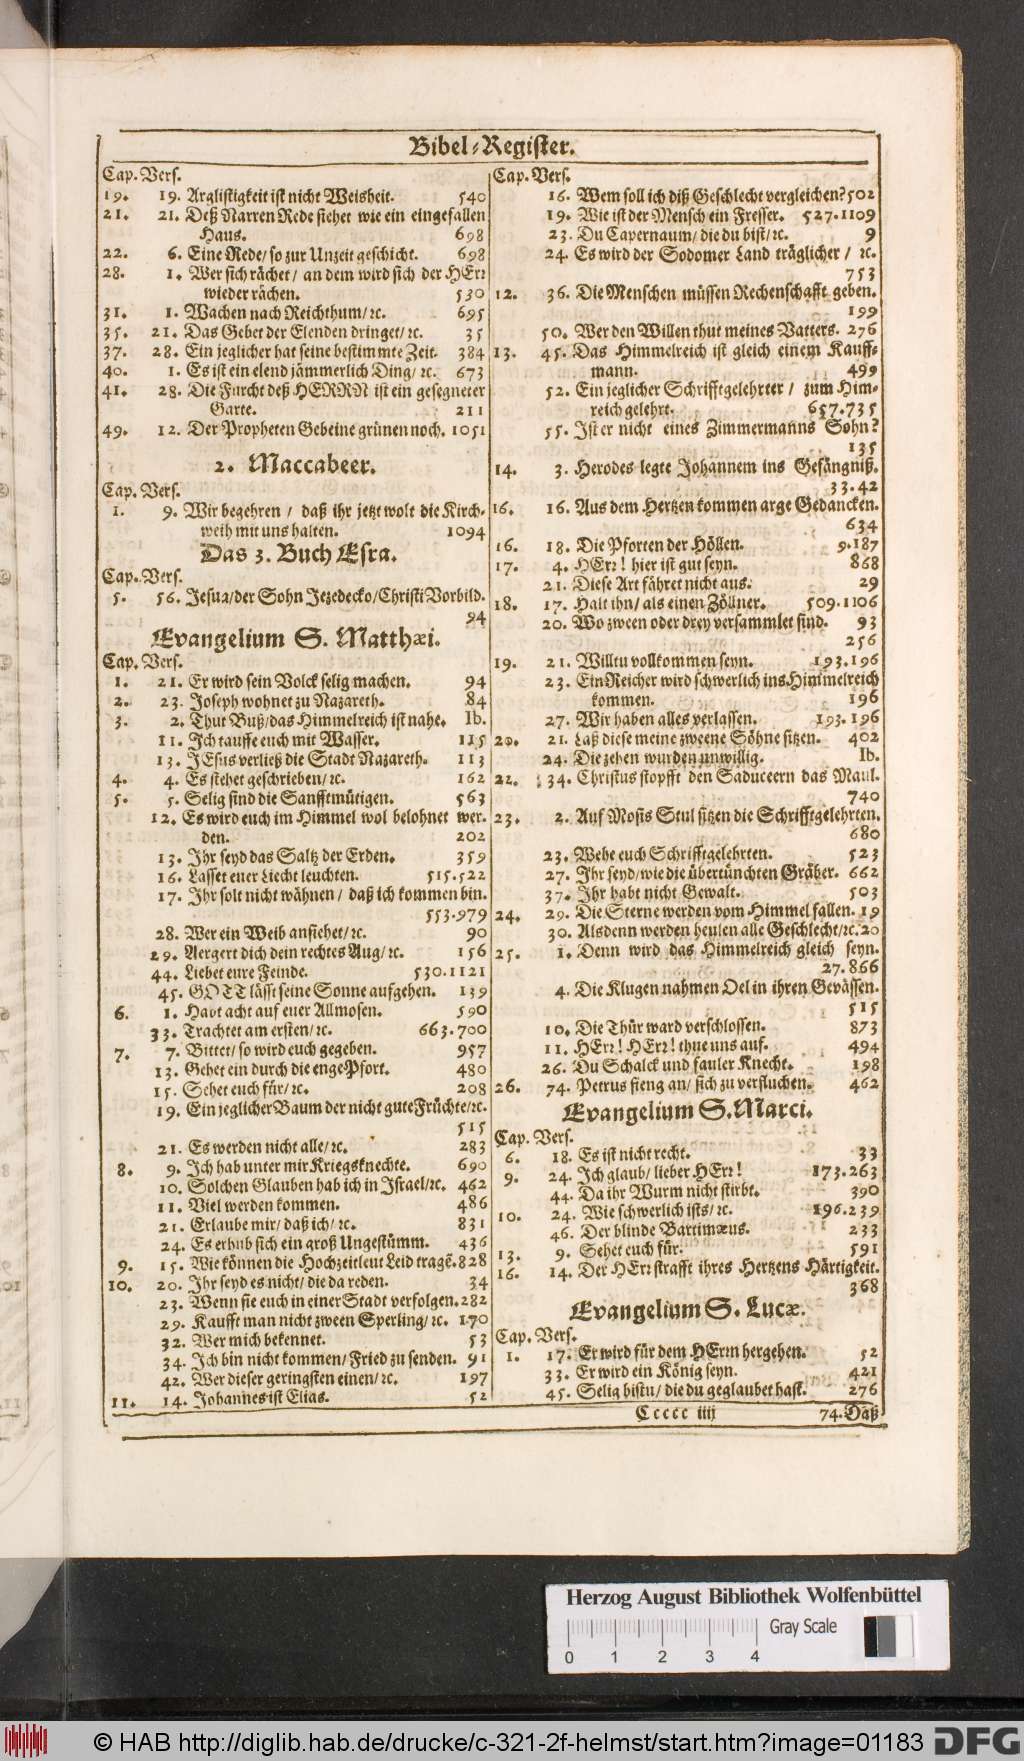 Bibel-Register.
Cap. Vers.
19. 19. Arglistigkeit ist nicht Weisheit. 540
21. 21. Deß Narren Rede stehet wie ein eingefallen
Haus. 698
22. 6. Eine Rede/ so zur Unzeit geschicht. 698
28. 1. Wer sich rächet/ an dem wird sich der HErr
wieder rächen. 530
31. 1. Wachen nach Reichthum/ ꝛc. 695
35. 21. Das Gebet der Elenden dringet/ ꝛc. 35
37. 28. Ein jeglicher hat seine bestimmte Zeit. 384
40. 1. Es ist ein elend jämmerlich Ding/ ꝛc. 673
41. 28. Die Furcht deß HERRN ist ein gesegneter
Garte. 211
49. 12. Der Propheten Gebeine grünen noch. 1051
2. Maccabeer.
Cap. Vers.
1. 9. Wir begehren / daß ihr jetzt wolt die Kirch-
weih mit uns halten. 1094
Das 3. Buch Esra.
Cap. Vers.
5. 56. Jesua/ der Sohn Jezedecko/ Christi Vorbild.
94
Evangelium S. Matthæi.
Cap. Vers.
1. 21. Er wird sein Volck selig machen. 94
2. 23. Joseph wohnet zu Nazareth. 84
3. 2. Thut Buß/ das Himmelreich ist nahe. Ib.
11. Ich tauffe euch mit Wasser. 115
13. JEsus verließ die Stadt Nazareth. 113
4. 4. Es stehet geschrieben/ ꝛc. 162
5. 5. Selig sind die Sanfftmütigen. 563
12. Es wird euch im Himmel wol belohnet wer-
den. 202
13. Ihr seyd das Saltz der Erden. 359
16. Lasset euer Liecht leuchten. 515.522
17. Ihr solt nicht wähnen / daß ich kommen bin.
553.979
28. Wer ein Weib ansiehet/ ꝛc. 90
29. Aergert dich dein rechtes Aug/ ꝛc. 156
44. Liebet eure Feinde. 530.1121
45. GOTT lässt seine Sonne aufgehen. 139
6. 1. Habt acht auf euer Allmosen. 590
33. Trachtet am ersten/ ꝛc. 663.700
7. 7. Bittet/ so wird euch gegeben. 957
13. Gehet ein durch die enge Pfort. 480
15. Sehet euch für/ ꝛc. 208
19. Ein jeglicher Baum der nicht gute Früchte/ ꝛc.
515
21. Es werden nicht alle/ ꝛc. 283
8. 9. Ich hab unter mir Kriegsknechte. 690
10. Solchen Glauben hab ich in Israel/ ꝛc. 462
11. Viel werden kommen. 486
21. Erlaube mir/ daß ich/ ꝛc. 831
24. Es erhub sich ein groß Ungestümm. 436
9. 15. Wie können die Hochzeitleut Leid tragẽ. 828
10. 20. Ihr seyd es nicht/ die da reden. 34
23. Wenn sie euch in einer Stadt verfolgen. 282
29. Kaufft man nicht zween Sperling/ ꝛc. 170
32. Wer mich bekennet. 53
34. Ich bin nicht kommen/ Fried zu senden. 91
42. Wer dieser geringsten einen/ ꝛc. 197
11. 14. Johannes ist Elias. 52
Cap. Vers.
16. Wem soll ich diß Geschlecht vergleichen? 502
19. Wie ist der Mensch ein Fresser. 527.1109
23. Du Capernaum/ die du bist/ ꝛc. 9
24. Es wird der Sodomer Land träglicher / ꝛc.
753
12. 36. Die Menschen müssen Rechenschafft geben.
199
50. Wer den Willen thut meines Vatters. 276
13. 45. Das Himmelreich ist gleich einem Kauff-
mann. 499
52. Ein jeglicher Schrifftgelehrter / zum Him-
reich gelehrt. 657.735
55. Ist er nicht eines Zimmermanns Sohn?
135
14. 3. Herodes legte Johannem ins Gefängniß.
33.42
16. 16. Aus dem Hertzen kommen arge Gedancken.
634
16. 18. Die Pforten der Höllen. 9.187
17. 4. HErr! hier ist gut seyn. 868
21. Diese Art fähret nicht aus. 29
18. 17. Halt ihn/ als einen Zöllner. 509.1106
20. Wo zween oder drey versammlet sind. 93
256
19. 21. Willtu vollkommen seyn. 193.196
23. Ein Reicher wird schwerlich ins Himmelreich
kommen. 196
27. Wir haben alles verlassen. 193.196
20. 21. Laß diese meine zweene Söhne sitzen. 402
24. Die zehen wurden unwillig. Ib.
22. 34. Christus stopfft den Saduceern das Maul.
740
23. 2. Auf Mosis Stul sitzen die Schrifftgelehrten.
680
23. Wehe euch Schrifftgelehrten. 523
27. Ihr seyd/ wie die übertünchten Gräber. 662
37. Ihr habt nicht Gewalt. 503
24. 29. Die Sterne werden vom Himmel fallen. 19
30. Alsdenn werden heulen alle Geschlecht/ ꝛc. 20
25. 1. Denn wird das Himmelreich gleich seyn.
27.866
4. Die Klugen nahmen Oel in ihren Gevässen.
515
10. Die Thür ward verschlossen. 873
11. HErr! HErr! thue uns auf. 494
26. Du Schalck und fauler Knecht. 198
26. 74. Petrus fieng an/ sich zu verfluchen. 462
Evangelium S. Marci.
Cap. Vers.
6. 18. Es ist nicht recht. 33
9. 24. Ich glaub/ lieber HErr! 173.263
44. Da ihr Wurm nicht stirbt. 390
10. 24. Wie schwerlich ists/ ꝛc. 196.239
46. Der blinde Bartimæus. 233
13. 9. Sehet euch für. 591
16. 14. Der HErr strafft ihres Hertzens Härtigkeit.
368
Evangelium S. Lucæ.
Cap. Vers.
1. 17. Er wird für dem HErrn hergehen. 52
33. Er wird ein König seyn. 421
45. Selig bistu/ die du geglaubet hast. 276
Ccccc iiij 74. Daß
Herzog August Bibliothek Wolfenbüttel
Gray Scale
0 1 2 3 4
© HAB http://diglib.hab.de/drucke/c-321-2f-helmst/start.htm?image=01183
DFG